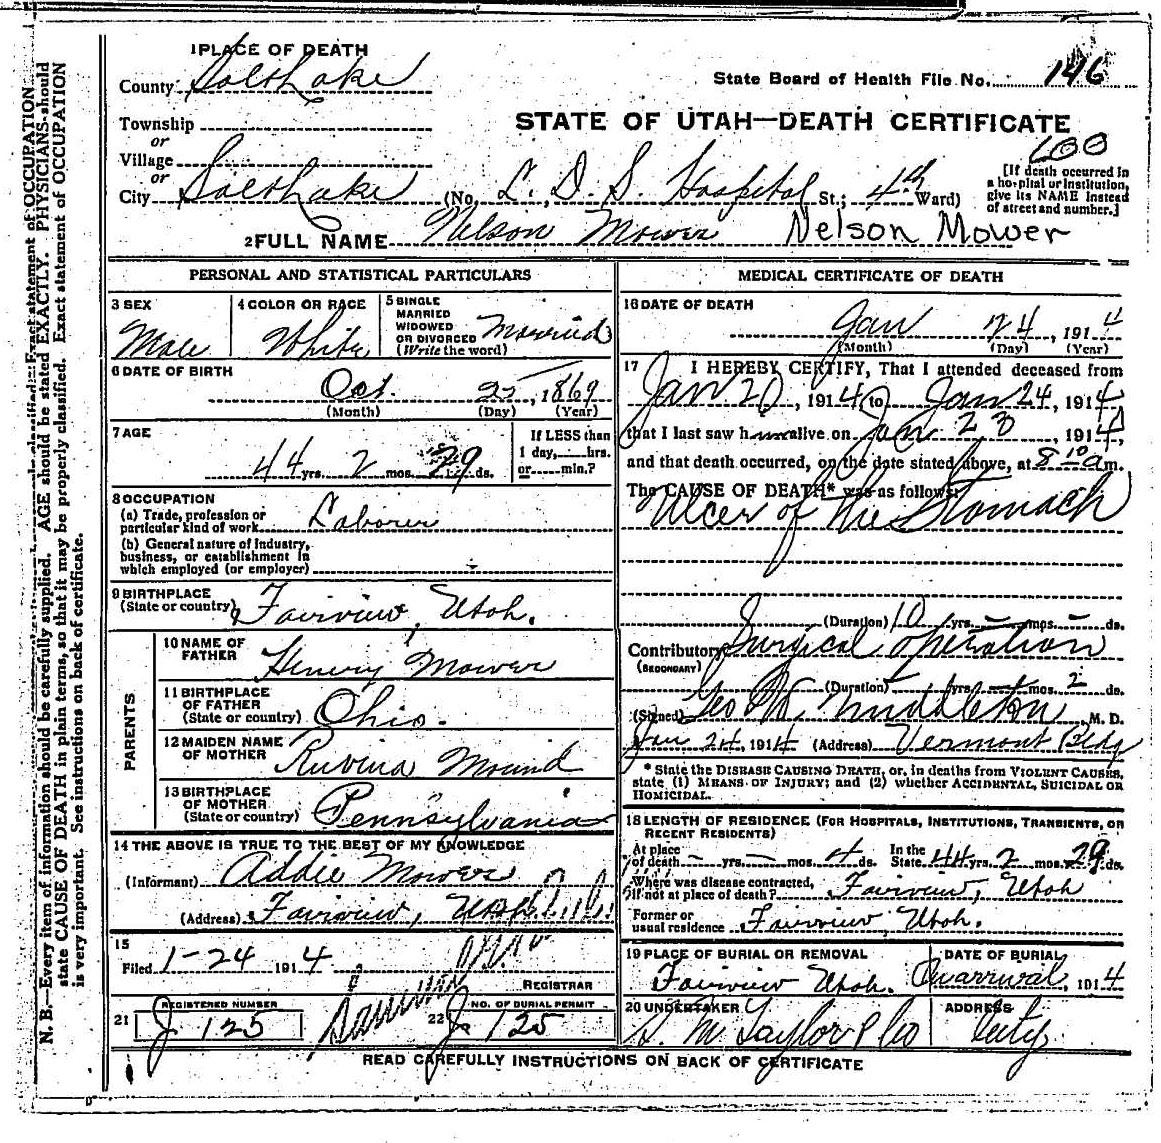 1 PLACE OF DEATH
County Salt Lake
State Board of Health File No. 146
Township
or
Village
or
STATE OF UTAH—DEATH CERTIFICATE
600
City Salt Lake (No. L. D. S. Hospital St.; 4th Ward)
[If death occurred in
a hospital or institution,
give its NAME instead
of street and number.]
2 FULL NAME Nelson Mower Nelson Mower
PERSONAL AND STATISTICAL PARTICULARS
3 SEX
Male
4 COLOR OR RACE
White
5 SINGLE
MARRIED
WIDOWED
OR DIVORCED
(Write the word)
Married
6 DATE OF BIRTH
Oct. 25, 1869
(Month) (Day) (Year)
7 AGE
44 yrs. 2 mos. 29 ds.
If LESS than
1 day, hrs.
or min.?
8 OCCUPATION
(a) Trade, profession or
particular kind of work Laborer
(b) General nature of industry,
business, or establishment in
which employed (or employer)
9 BIRTHPLACE
(State or country) Fairview, Utah.
PARENTS
10 NAME OF
FATHER Henry Mower
11 BIRTHPLACE
OF FATHER
(State or country) Ohio.
12 MAIDEN NAME
OF MOTHER Ruvina Mound
13 BIRTHPLACE
OF MOTHER
(State or country) Pennsylvania
14 THE ABOVE IS TRUE TO THE BEST OF MY KNOWLEDGE
(Informant) Addie Mower
(Address) Fairview, Utah
15
Filed 1-24 1914
REGISTRAR
21 REGISTERED NUMBER
J 125
22 NO. OF BURIAL PERMIT
J 125
MEDICAL CERTIFICATE OF DEATH
16 DATE OF DEATH
Jan 24, 1914
(Month) (Day) (Year)
17 I HEREBY CERTIFY, That I attended deceased from
Jan 20, 1914 to Jan 24, 1914
that I last saw him alive on Jan 23, 1914,
and that death occurred, on the date stated above, at 8 10 a m.
The CAUSE OF DEATH* was as follows:
Ulcer of the Stomach
(Duration) 10 yrs. – mos. – ds.
Contributory Surgical operation
(SECONDARY)
(Duration) – yrs. – mos. 2 ds.
(Signed) Geo W Middleton M. D.
Jan 24, 1914 (Address) Vermont Bldg
* State the DISEASE CAUSING DEATH, or, in deaths from VIOLENT CAUSES,
state (1) MEANS OF INJURY; and (2) whether ACCIDENTAL, SUICIDAL OR
HOMICIDAL.
18 LENGTH OF RESIDENCE (FOR HOSPITALS, INSTITUTIONS, TRANSIENTS, OR
RECENT RESIDENTS)
At place
of death – yrs. – mos. 4 ds. In the
State 44 yrs. 2 mos. 29 ds.
Where was disease contracted,
if not at place of death? Fairview, Utah
Former or
usual residence Fairview Utah.
19 PLACE OF BURIAL OR REMOVAL
Fairview Utah.
DATE OF BURIAL
On arrival, 1914
20 UNDERTAKER
S. M. Taylor & Co
ADDRESS
City
READ CAREFULLY INSTRUCTIONS ON BACK OF CERTIFICATE
N. B.—Every item of information should be carefully supplied. AGE should be stated EXACTLY. PHYSICIANS should
state CAUSE OF DEATH in plain terms, so that it may be properly classified. Exact statement of OCCUPATION
is very important. See instructions on back of certificate.